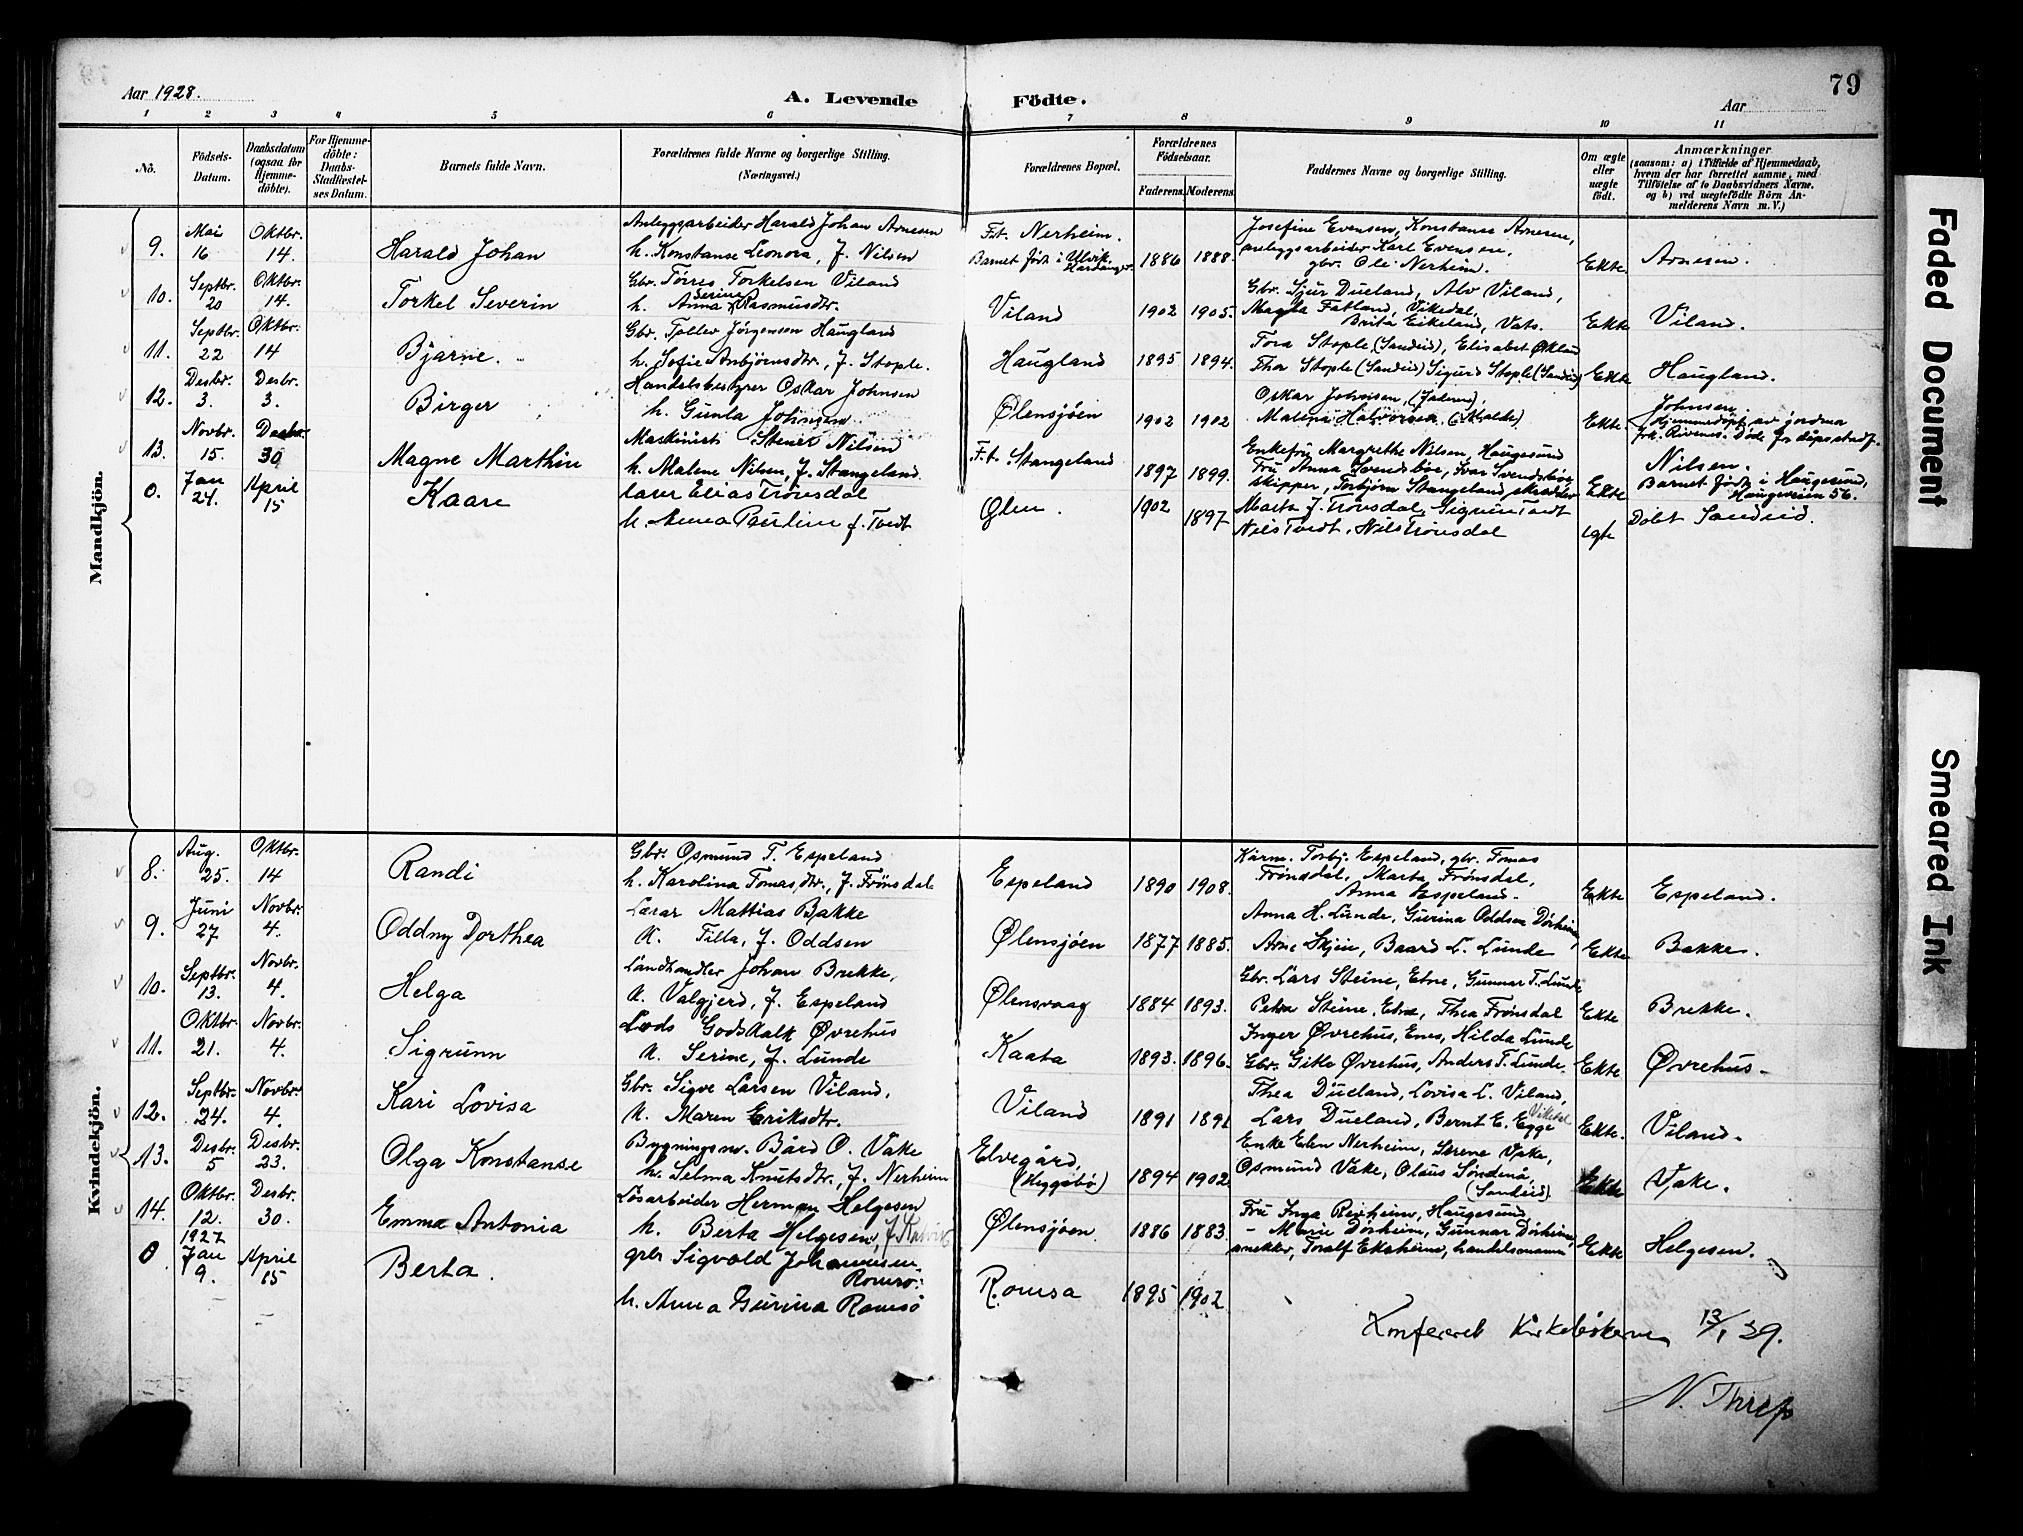 79
Aar 1928.
A. Levende Födte.
Aar
1 2 3 4 5 6 7 8 9 10 11
No.
Födsels-Datum.
Daabsdatum (ogsaa for Hjemme-döbte).
For Hjemme-döbte: Daabs-Stadfæstel-ses Datum.
Barnets fulde Navn.
Forældrenes fulde Navne og borgerlige Stilling. (Næringsvei.)
Forældrenes Bopæl.
Forældrenes Födselsaar.
Faderens. Moderens.
Faddernes Navne og borgerlige Stilling.
Om ægte eller uægte födt.
Anmærkninger (saasom: a) i Tilfælde af Hjemmedaab, hvem der har forrettet samme, med Tilföielse af to Daabsvidners Navne, og b) ved uægtefödte Börn An-melderens Navn m. V.)
Mandkjön.
9. Mai 16 Oktbr. 14. Harald Johan
Anleggsarbeider Harald Johan Arnesen
h. Konstanse Leonora, f. Nilsen
F.t. Nerheim.
Barnet født i Ulvik, Hardanger. 1886 1888.
Josefine Evensen, Konstanse Arnesen,
anleggsarbeider Karl Evensen,
gbr. Ole Nerheim. Ekte Arnesen.
10. Septbr. 20 Oktbr. 14. Torkel Severin
Gbr. Tørres Torkelsen Viland
h. Anna Serina Rasmusdtr.
Viland 1902 1905.
Gbr. Sjur Dueland, Alv Viland,
Magla Fatland, Vikedal,
Brita Eikeland, Vats. Ekte Viland.
11. Septbr. 22 Oktbr. 14 Bjarne.
Gbr. Tollev Jörgensen Haugland
h. Sofie Anbjørnsdtr., f. Stople.
Haugland 1895 1894.
Tora Stople (Sandeid), Elisabet Økland
Thor Stople (Sandeid) Sigurd Stople (Sandeid) Ekte Haugland.
12. Desbr. 3. Desbr. 3. Birger
Handelsbestyrer Oskar Johnsen
h. Gunla Johnsen
Ølensjøen 1902 1902
Oskar Johnsen,
Malena Halvorsen Ekte. Johnsen.
Hjemmedöpt av jordmor
frk. Rivenes. Døde før dåpsstadf.
13. Novbr. 15. Desbr. 30 Magne Marthin
Maskinist Steinar Nilsen
h. Malene Nilsen, f. Stangeland
F.t. Stangeland 1897 1899.
Enkefru Margrethe Nilsen, Haugesund
Fru Anna Svendsbøe, Ivar Svendsbøe
skipper, Torbjørn Stangeland, skredder Ekte Nilsen.
Barnet født i Haugesund,
Haugeveien 56.
0. Jan 24. April 15 Kaare
lærer Elias Trönsdal
h. Anna Pauline f. Tvedt
Ølen. 1902 1897
Marta f. Trönsdal, Sigrun Tvedt
Nils Tvedt, Nils Trönsdal egte Døbt Sandeid.
Kvindekjön.
8. Aug. 25. Oktbr. 14 Randi
Gbr. Osmund T. Espeland
h. Karolina Tomasdtr., f. Frönsdal
Espeland 1890 1908.
Kårm. Torbj. Espeland, gbr. Tomas
Frönsdal, Marta Frönsdal,
Anna Espeland. Ekte Espeland.
9. Juni 27 Novbr. 4. Oddny Dorthea
Lærar Mattias Bakke
K. Tilla, f. Oddsen
Ølensjøen 1877 1885.
Anna H. Lunde, Gurina Oddsen Dörheim,
Arne Skjei, Baard L. Lunde Ekte Bakke.
10. Septbr. 13. Novbr. 4. Helga
Landhandler Johan Brekke,
K. Valgjerd, f. Espeland
Ølensvaag 1884 1893.
Gbr. Lars Steine, Etne, Gunnar T. Lunde
Petra Steine, Etne, Thea Frönsdal Ekte Brekke.
11. Oktbr. 21. Novbr. 4. Sigrunn
Lods Godskalk Øvrehus
K. Serine, f. Lunde
Kaata 1893. 1896.
Inger Øvrehus, Enes, Hilda Lunde
Gbr. Gitle Øvrehus, Anders T. Lunde. Ekte Øvrehus.
12. Septbr. 24. Novbr. 4. Kari Lovisa
Gbr. Sigve Larsen Viland,
K. Maren Eriksdtr.
Viland 1891 1891
Thea Dueland, Lovisa L. Viland,
Lars Dueland, Bernt E. Egge Vikedal Ekte. Viland.
13. Desbr. 5 Desbr. 23. Olga Konstanse
Bygningsm. Bård O. Vake
h. Selma Knutsdtr., f. Nerheim
Elvegård, (Heggebø) 1894 1902
Enke Elen Nerheim, Serene Vake,
Osmund Vake, Olaus Söndenå,
(Sandeid) Ekte Vake.
14. Oktbr. 12. Desbr. 30. Emma Antonia
Løsarbeider Herman Helgesen
h. Berta Helgesen,
Ølensjøen 1886 1883
Fru Inga Reinheim, Haugesund
- Marie Dörheim, Gunnar Dörheim,
snekker, Toralf Eksheim, handelsmann Ekte Helgesen.
0 1927 Jan 9. April 15 Berta.
gbr Sigvald Johannesen
Romsa.
h. Anna Gurina Romsö
Romsa 1895 1902
Konferert Kirkebøkerne 13/1 29.
N. Thrap
Faded Document
Smeared Ink